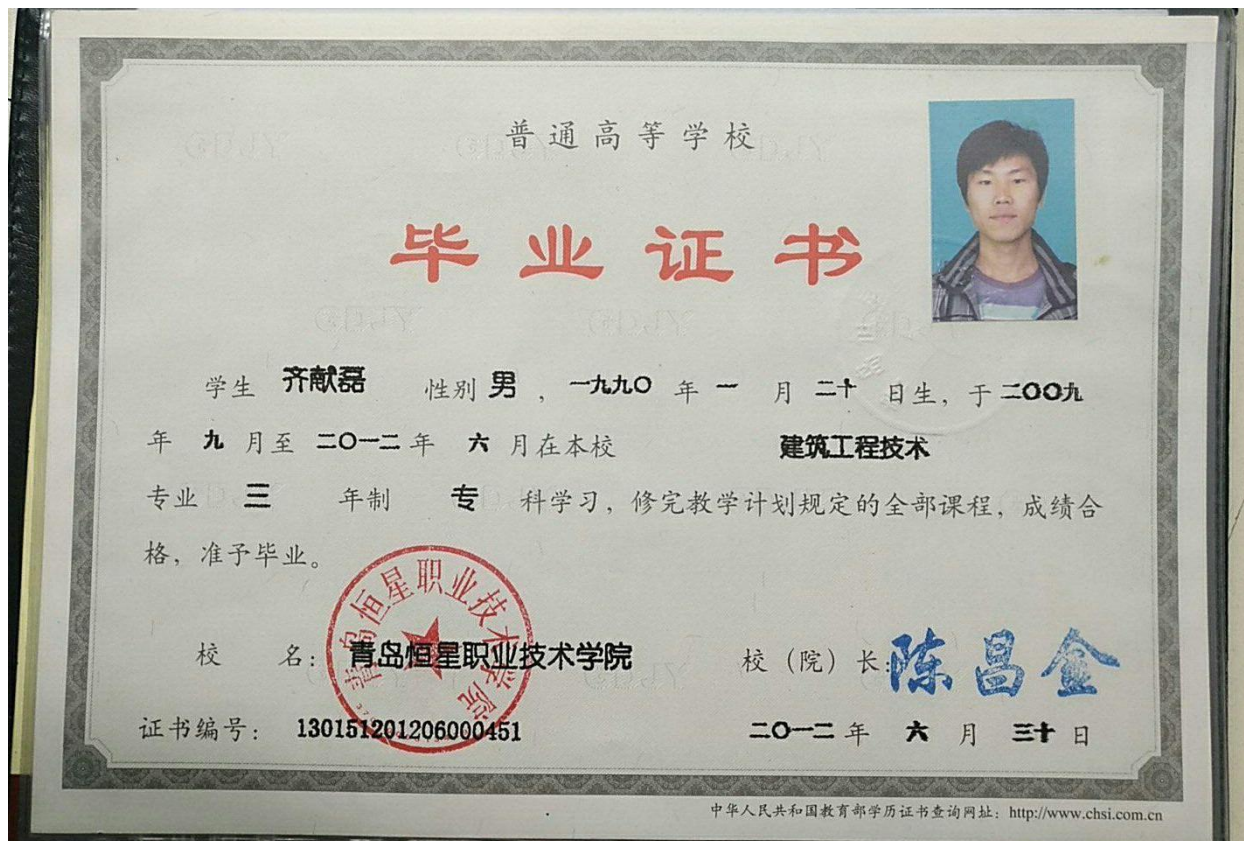 普通高等学校
毕业证书
学生 齐献磊 性别 男 , 一九九〇 年 一 月 二十 日生, 于 二〇〇九
年 九 月至 二〇一二 年 六 月在本校 建筑工程技术
专业 三 年制 专 科学习, 修完教学计划规定的全部课程, 成绩合
格, 准予毕业。
青岛恒星职业技术学院
校 名: 青岛恒星职业技术学院 校 (院) 长: 陈昌金
证书编号: 130151201206000451 二〇一二 年 六 月 三十 日
中华人民共和国教育部学历证书查询网址: http://www.chsi.com.cn